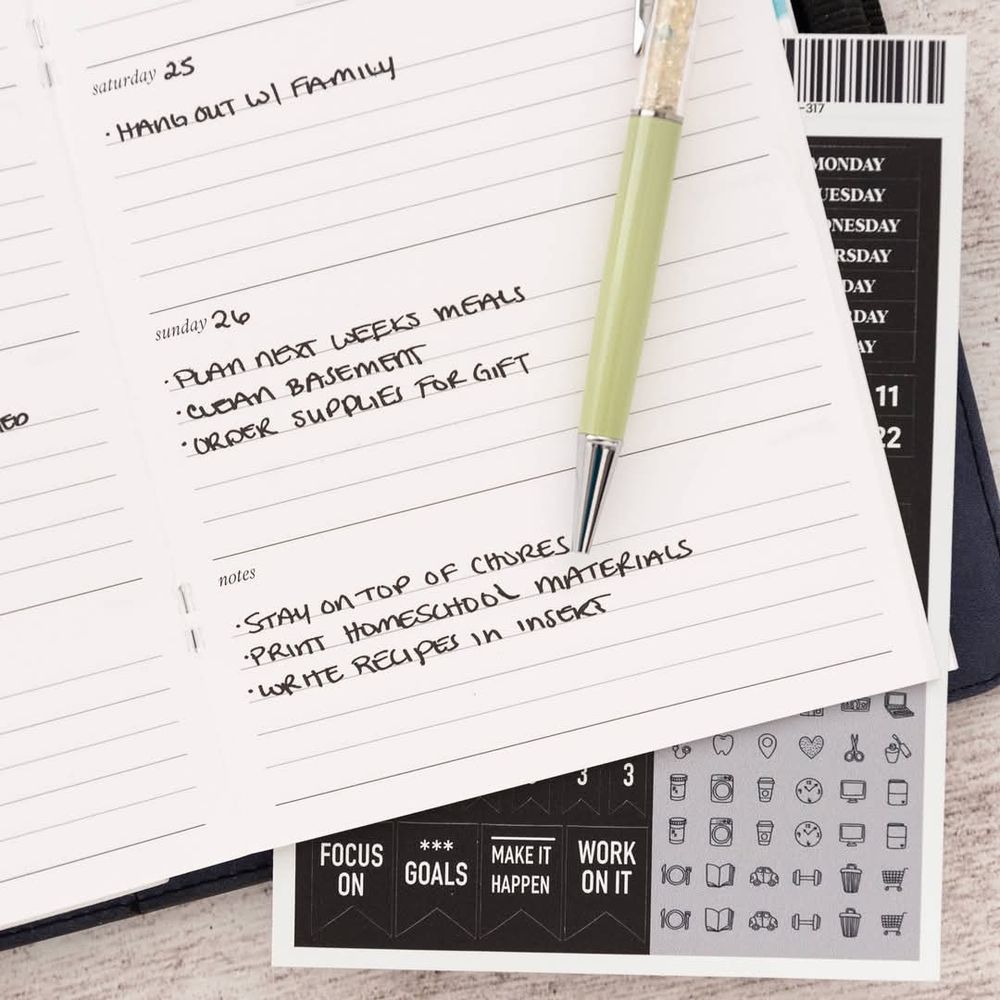 saturday 25
· HANG OUT W/ FAMILY
sunday 26
· PLAN NEXT WEEKS MEALS
· CLEAN BASEMENT
· ORDER SUPPLIES FOR GIFT
notes
· STAY ON TOP OF CHORES
· PRINT HOMESCHOOL MATERIALS
· WRITE RECIPES IN INSERT
-317
MONDAY
UESDAY
DNESDAY
RSDAY
DAY
RDAY
AY
11
22
3 3
FOCUS
ON
***
GOALS
MAKE IT
HAPPEN
WORK
ON IT